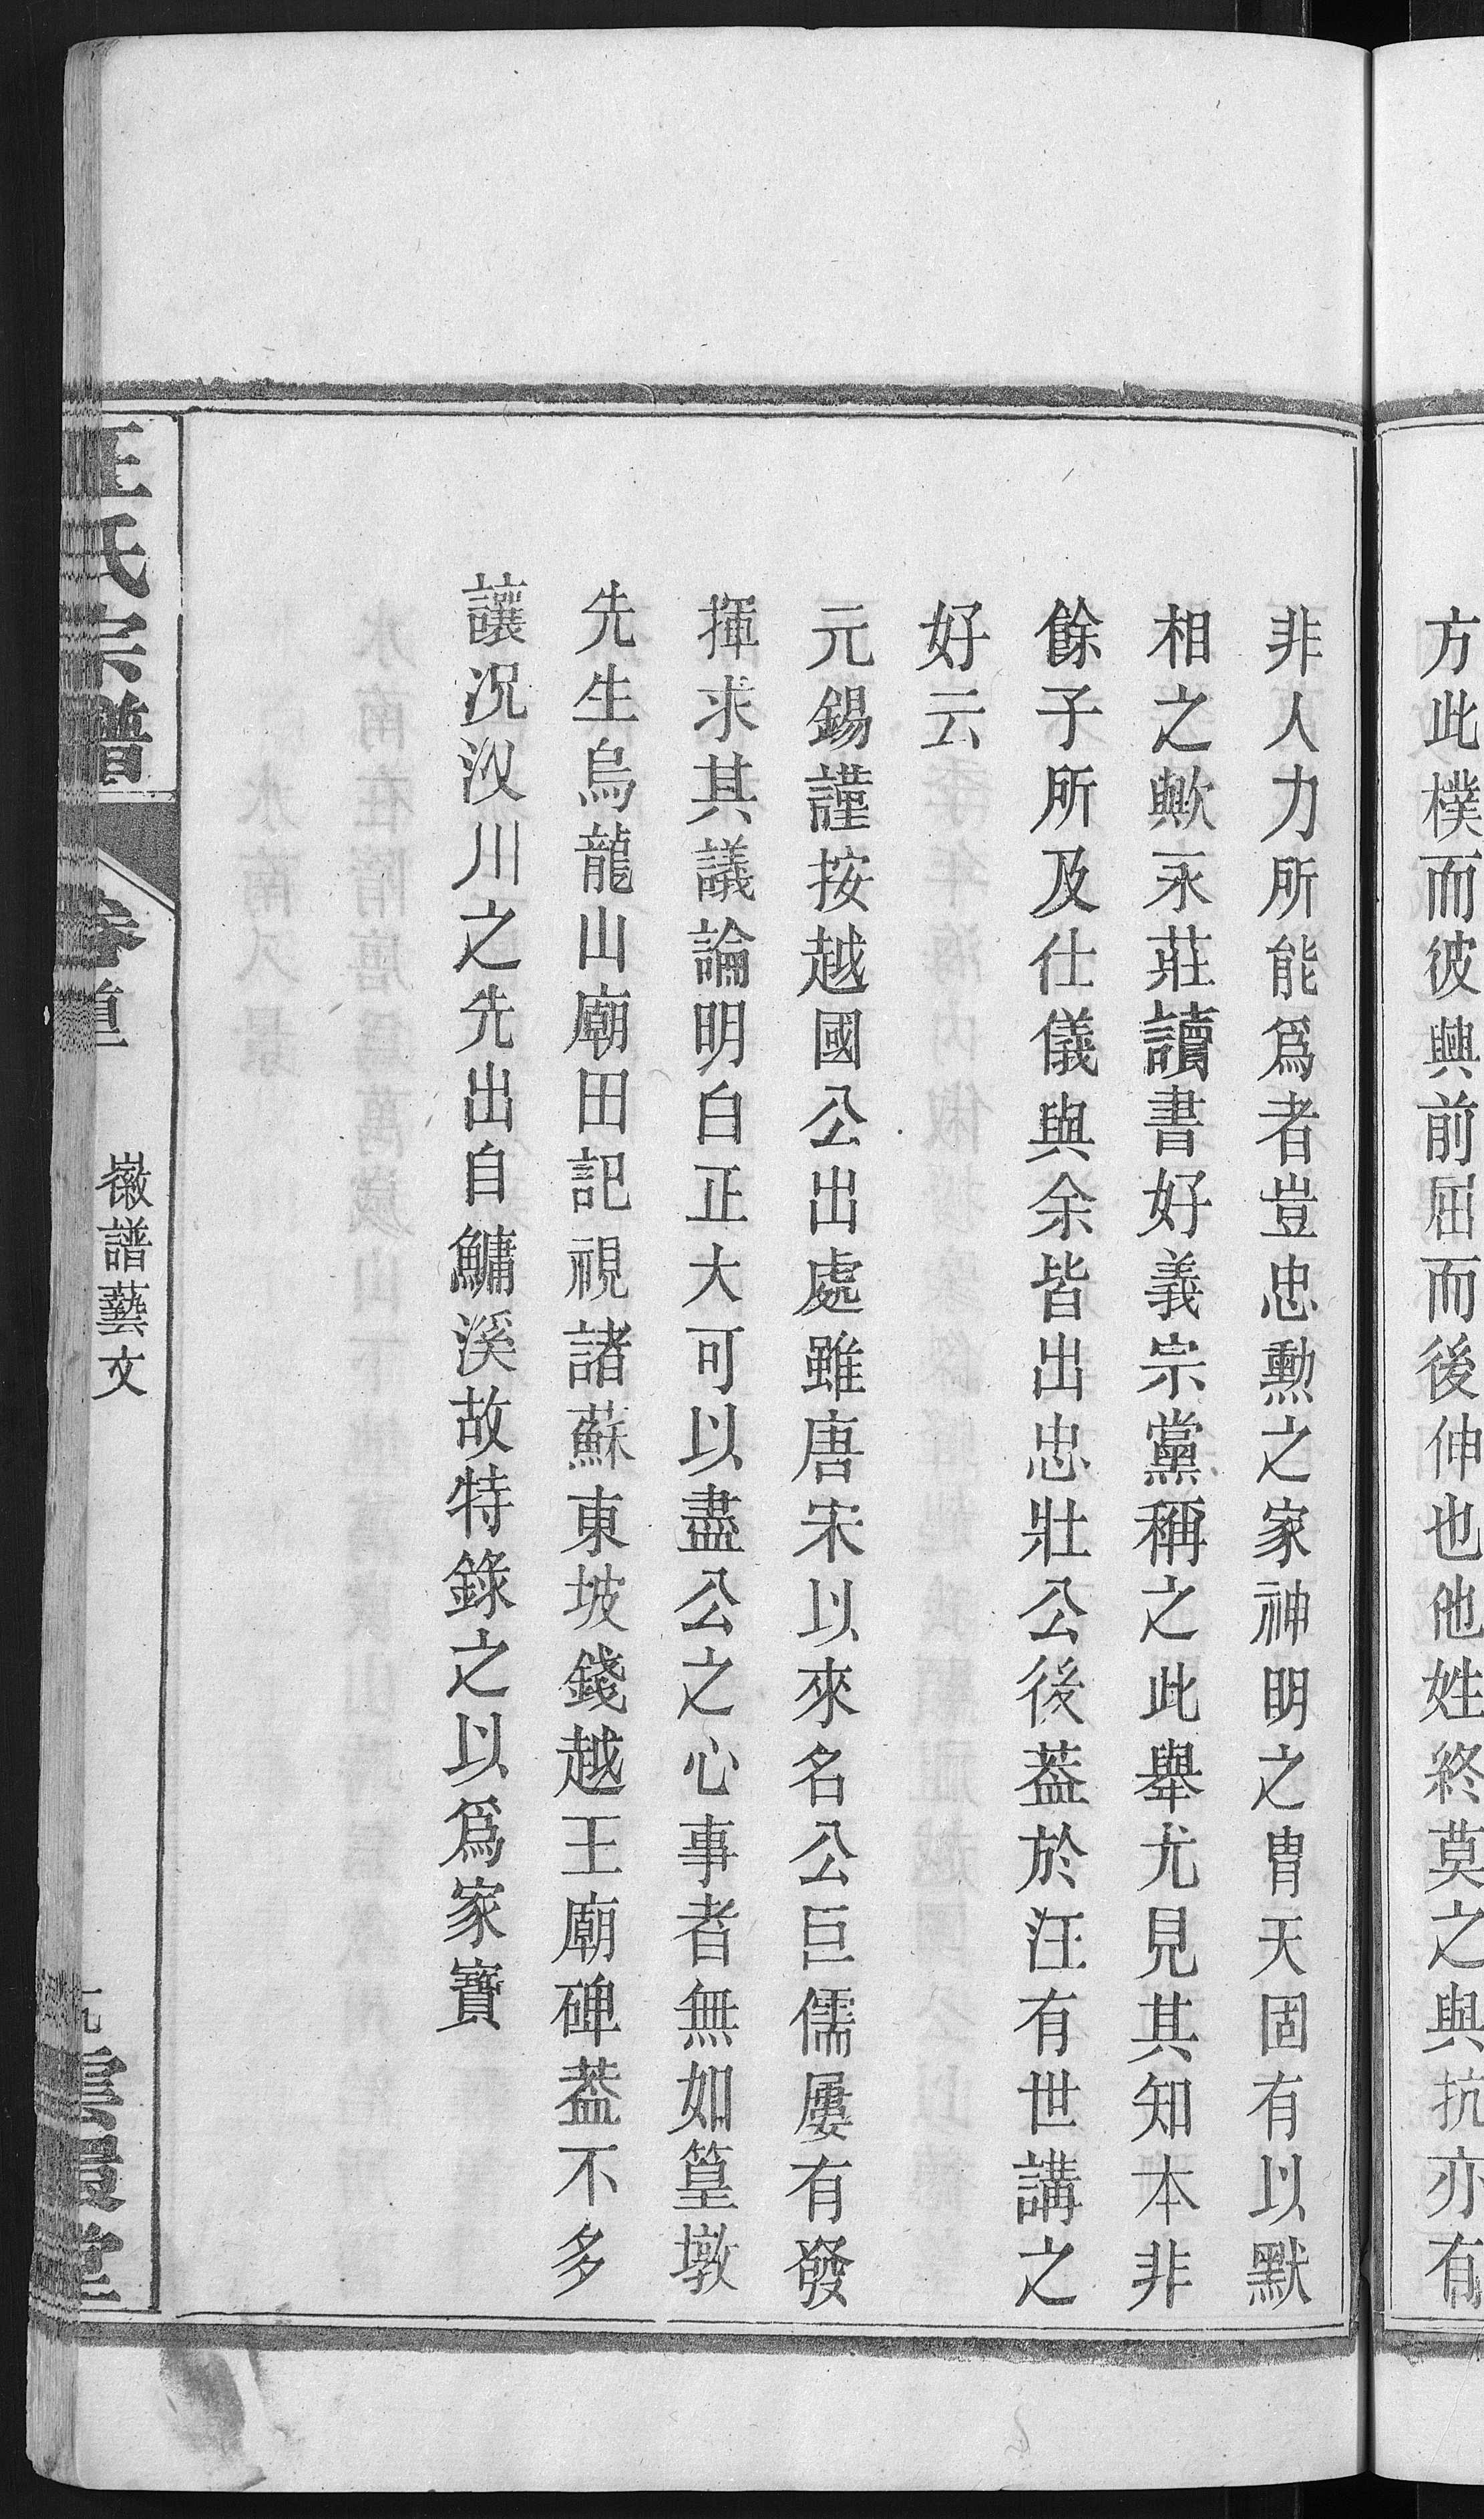 方此樸而彼興前屈而後伸也他姓終莫之與抗亦有
非人力所能爲者豈忠勲之家神明之胄天固有以默
相之歟永莊讀書好義宗黨稱之此舉尤見其知本非
餘子所及仕儀與余皆出忠壯公後葢於汪有世講之
好云
元錫謹按越國公出處雖唐宋以來名公巨儒屢有發
揮求其議論明白正大可以盡公之心事者無如篁墩
先生烏龍山廟田記視諸蘇東坡錢越王廟碑葢不多
讓况汊川之先出自鱅溪故特錄之以爲家寶
汪氏宗譜
卷首
徽譜藝文
九